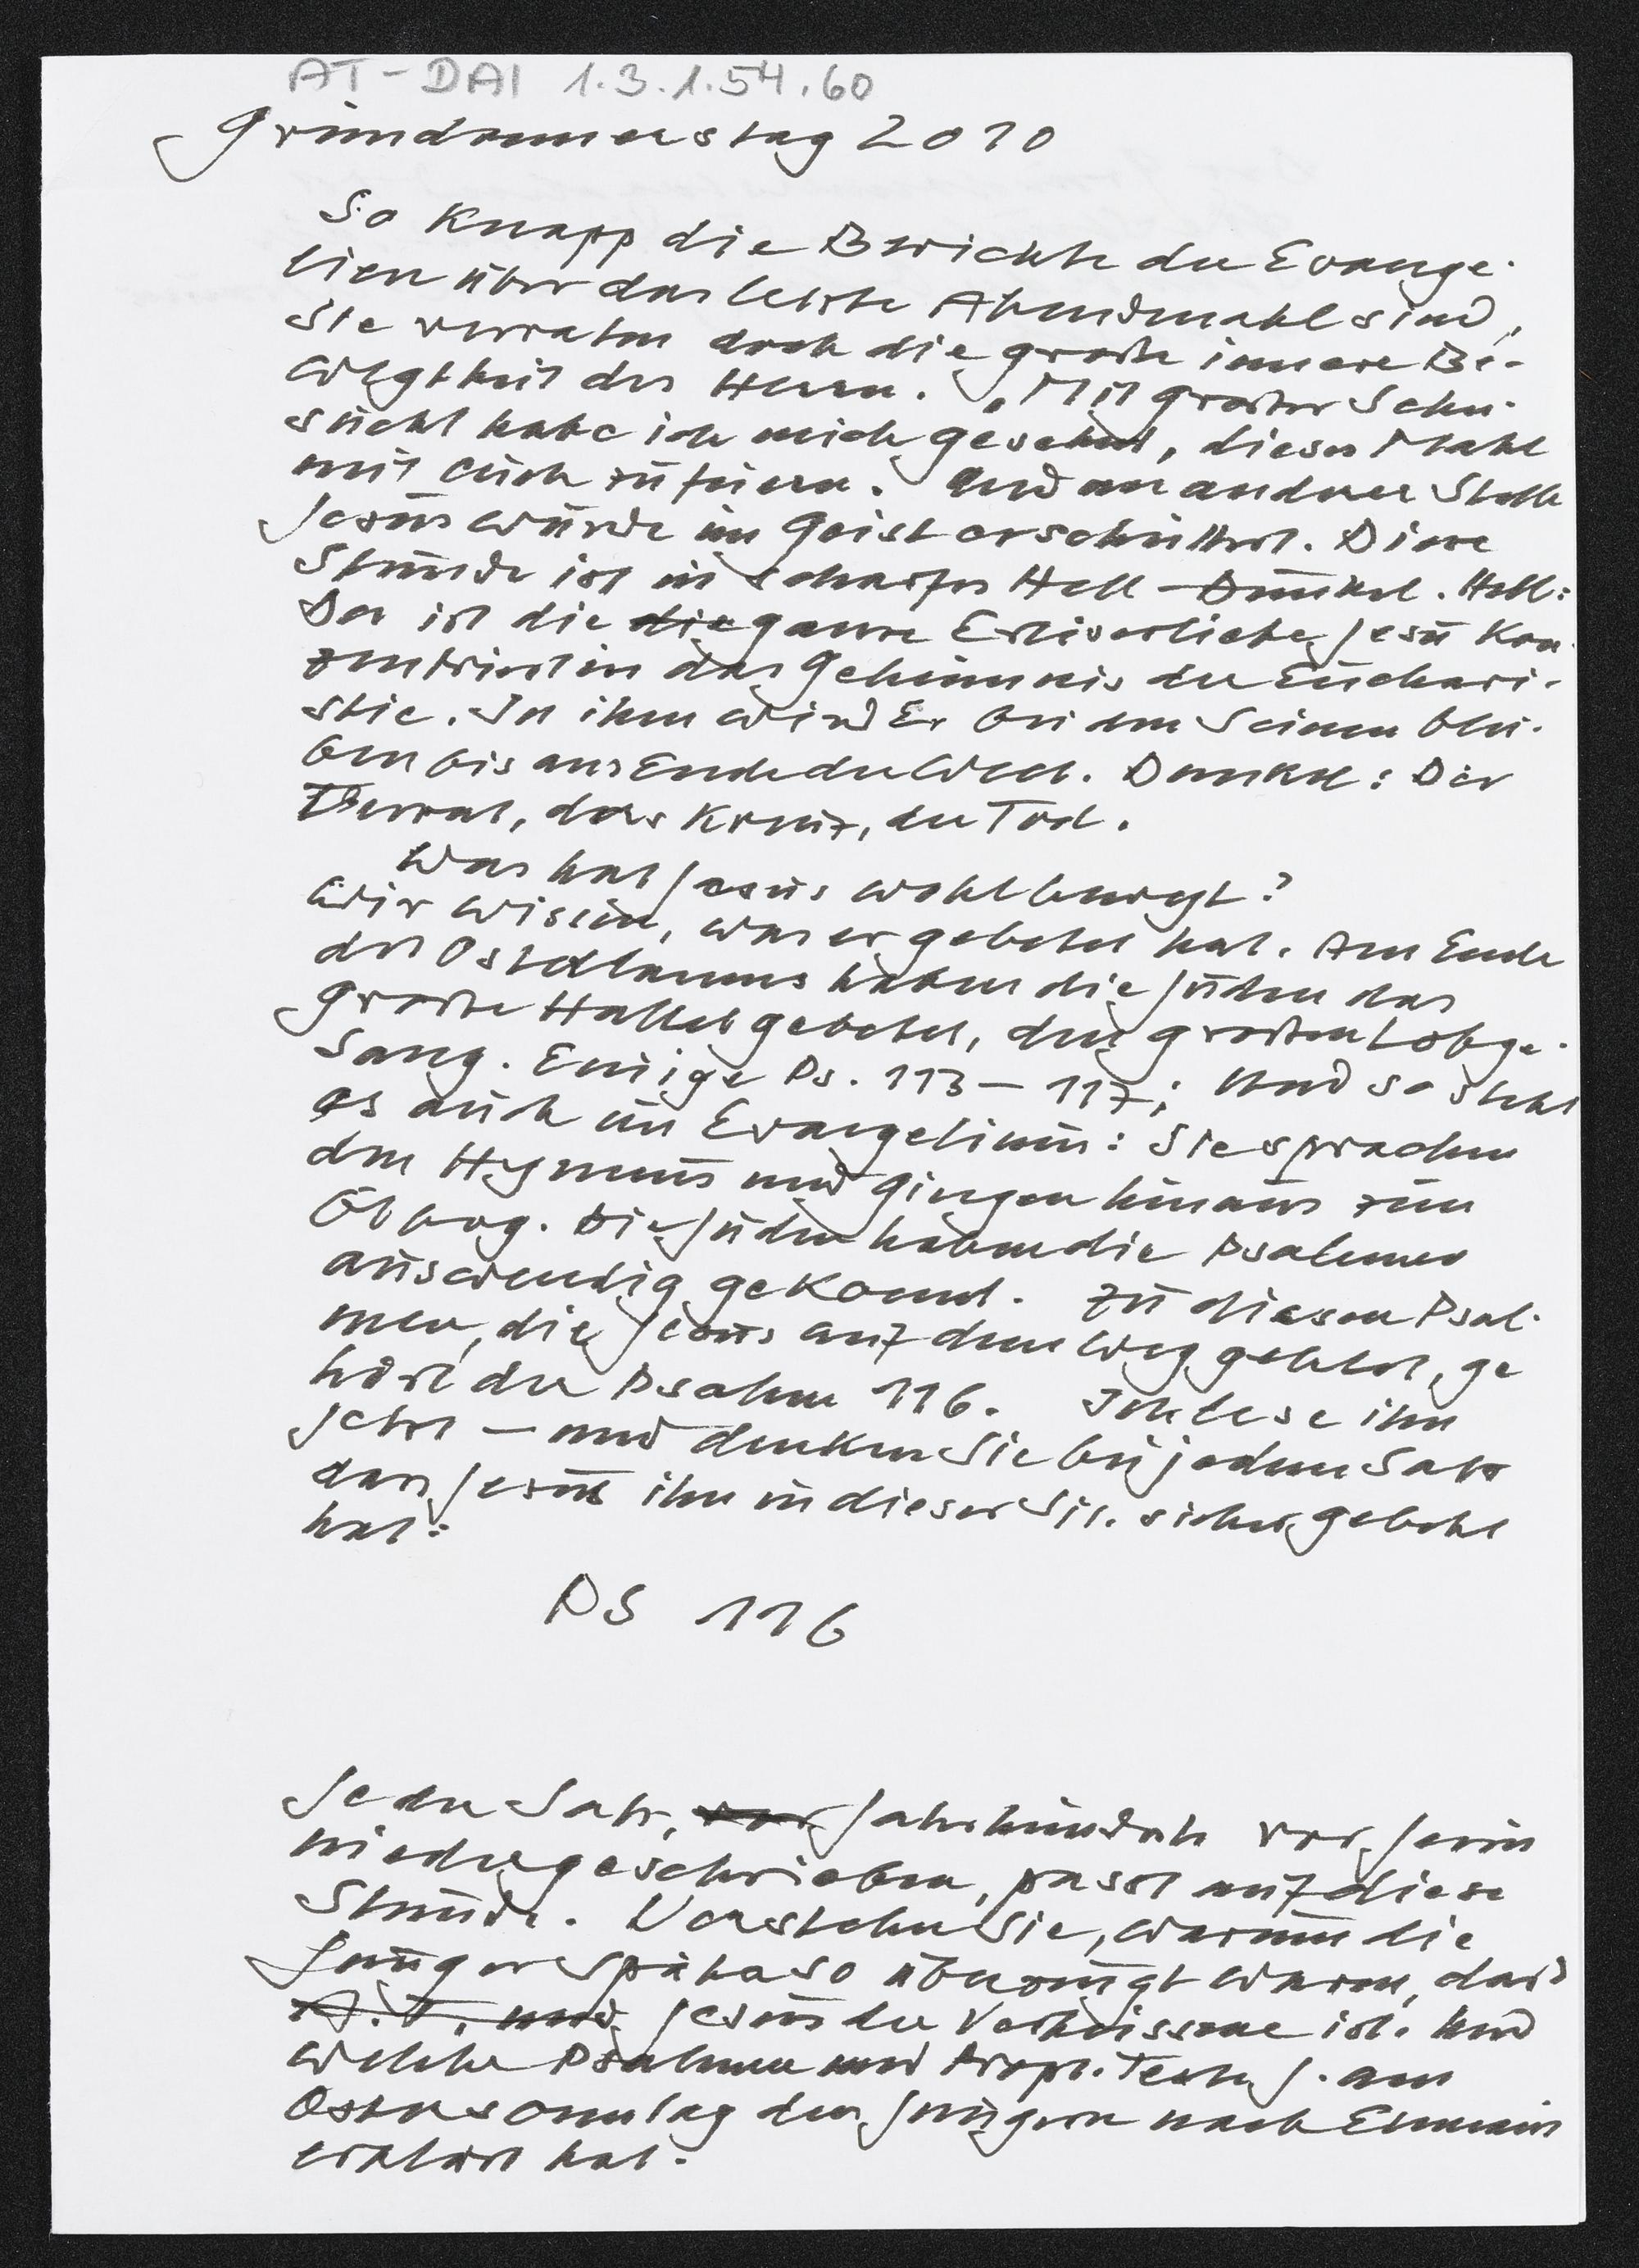 AT-DAI 1.3.1.54.60
Gründonnerstag 2010
So knapp die Berichte der Evange-
lien über das letzte Abendmahl sind,
sie verraten doch die große innere Be-
wegtheit des Herrn. „Mit großer Sehn-
sucht habe ich mich gesehnt, dieses Mahl
mit euch zu feiern. Und an anderer Stelle
Jesus wurde im Geist erschüttert. Diese
Stunde ist in scharfes Hell-Dunkel. Hell:
Da ist die die ganze Erlöserliebe Jesu kon-
zentriert in das Geheimnis der Euchari-
stie. In ihm wird Er bei den Seinen blei-
ben bis ans Ende der Welt. Dunkel: Der
Verrat, das Kreuz, der Tod.
Was hat Jesus wohl bewegt?
Wir wissen, was er gebetet hat. Am Ende
des Osterlamms haben die Juden das
große Hallel gebetet, den großen Lobge-
sang. Einige Ps. 113 – 117; Und so steht
es auch im Evangelium: Sie sprachen
den Hymnus und gingen hinaus zum
Ölberg. Die Juden haben die Psalmen
auswendig gekonnt. Zu diesen Psal-
men, die Jesus auf dem Weg gebetet, ge
hört der Psalm 116. Ich lese ihn
jetzt – und denken Sie bei jedem Satz
dass Jesus ihn in dieser Sit. sicher gebetet
hat:
PS 116
Jeder Satz, vor Jahrhunderte vor Jesus
niedergeschrieben, passt auf diese
Stunde. Verstehen Sie, warum die
Jünger später so überzeugt waren, dass
A.T. und Jesus der Verheissene ist. Und
welche Psalmen und Proph. Texte J. am
Ostersonntag den Jüngern nach Emmaus
erklärt hat.